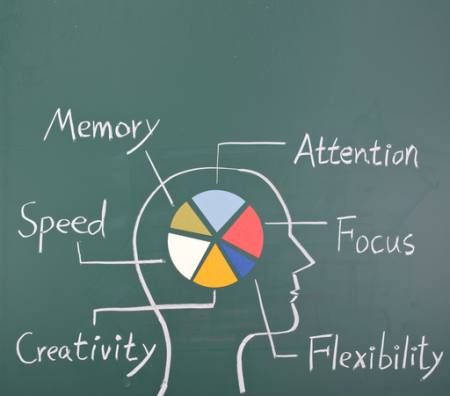 Memory
Attention
Speed
Focus
Creativity
Flexibility